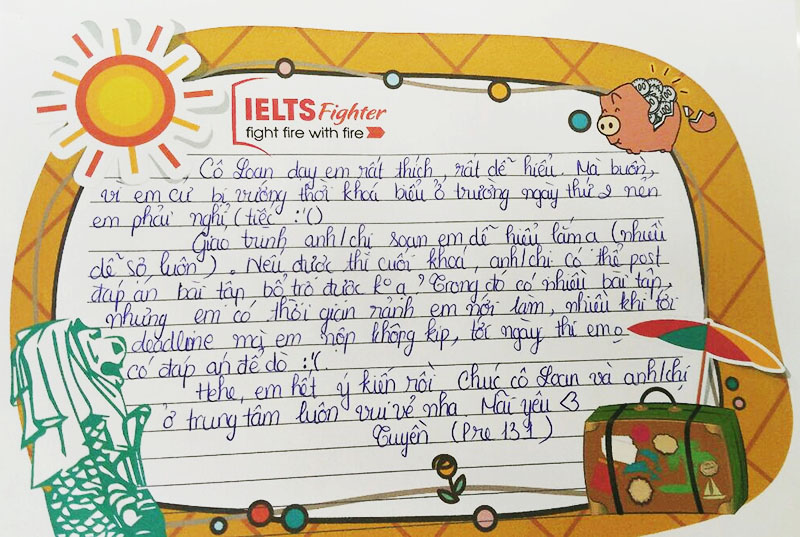 IELTS Fighter
fight fire with fire
Cô Loan dạy em rất thích, rất dễ hiểu. Mà buồn,
vì em cứ bị vướng thời khoá biểu ở trường ngày thứ 2 nên
em phải nghỉ (tiếc :'()
Giáo trình anh/chị soạn em dễ hiểu lắm ạ (nhiều
đề sở luôn). Nếu được thì cuối khoá, anh/chị có thể post
đáp án bài tập bổ trợ được k° ạ? Trong đó có nhiều bài tập,
nhưng em có thời gian rảnh em mới làm, nhiều khi tới
deadline mà em nộp không kịp, tới ngày thi em o
có đáp án để dò :'(.
Hehe, em hết ý kiến rồi. Chúc cô Loan và anh/chị
ở trung tâm luôn vui vẻ nha. Mãi yêu <3
Tuyền (Pre 131)